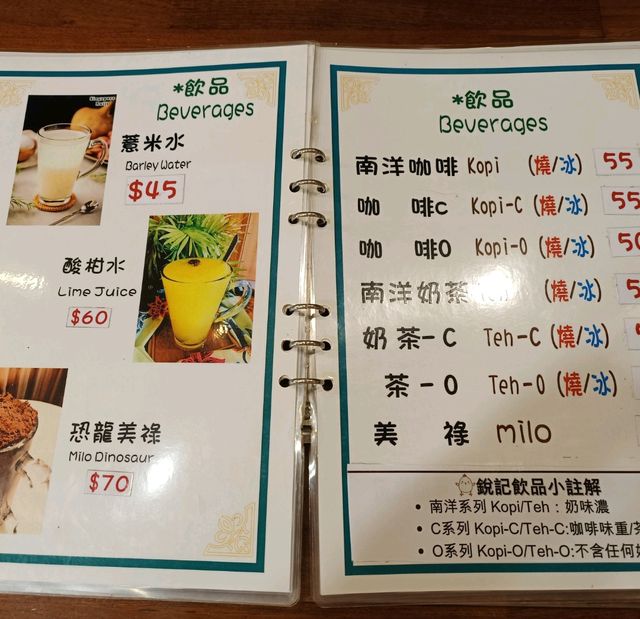 *飲品
Beverages
薏米水
Barley Water
$45
酸柑水
Lime Juice
$60
恐龍美祿
Milo Dinosaur
$70
*飲品
Beverages
南洋咖啡 Kopi (燒/冰) 55
咖 啡c Kopi-C (燒/冰) 55
咖 啡O Kopi-O (燒/冰)
南洋奶茶 (燒/冰)
奶茶-C Teh-C (燒/冰)
茶-O Teh-O (燒/冰)
美 祿 milo
銳記飲品小註解
• 南洋系列 Kopi/Teh：奶味濃
• C系列 Kopi-C/Teh-C:咖啡味重/茶
• O系列 Kopi-O/Teh-O:不含任何